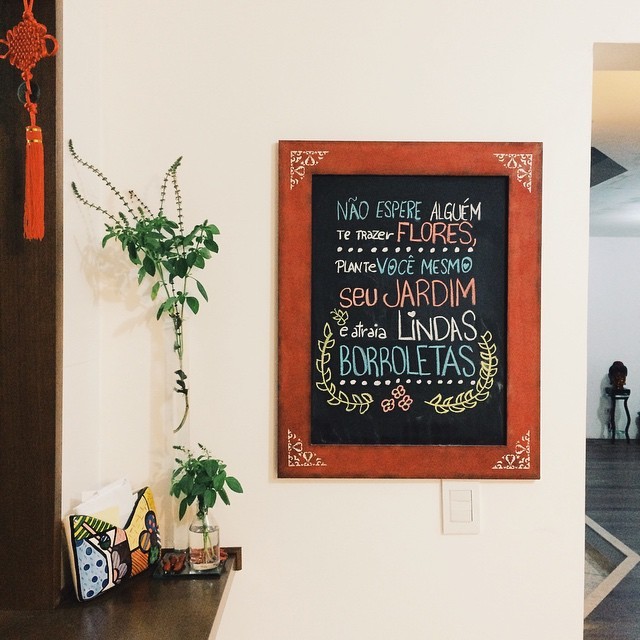 NÃO ESPERE ALGUÉM
TE TRAZER FLORES,
PLANTE VOCÊ MESMO
SEU JARDIM
E atraia LINDAS
BORROLETAS